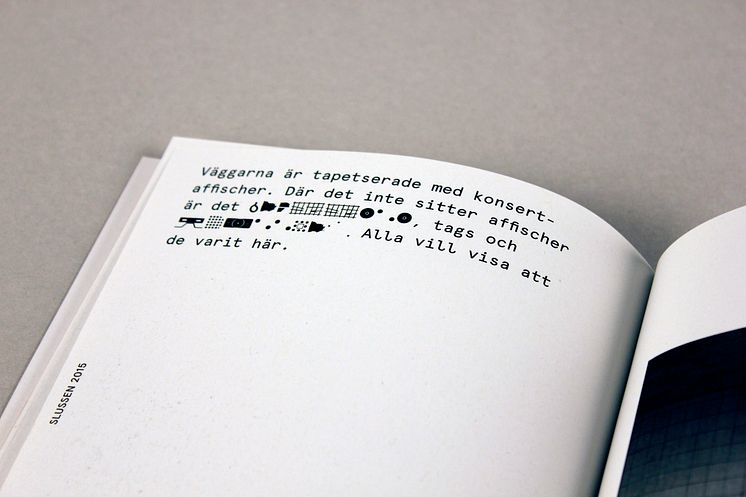 Väggarna är tapetserade med konsert-
affischer. Där det inte sitter affischer
är det , tags och
. Alla vill visa att
de varit här.
SLUSSEN 2015